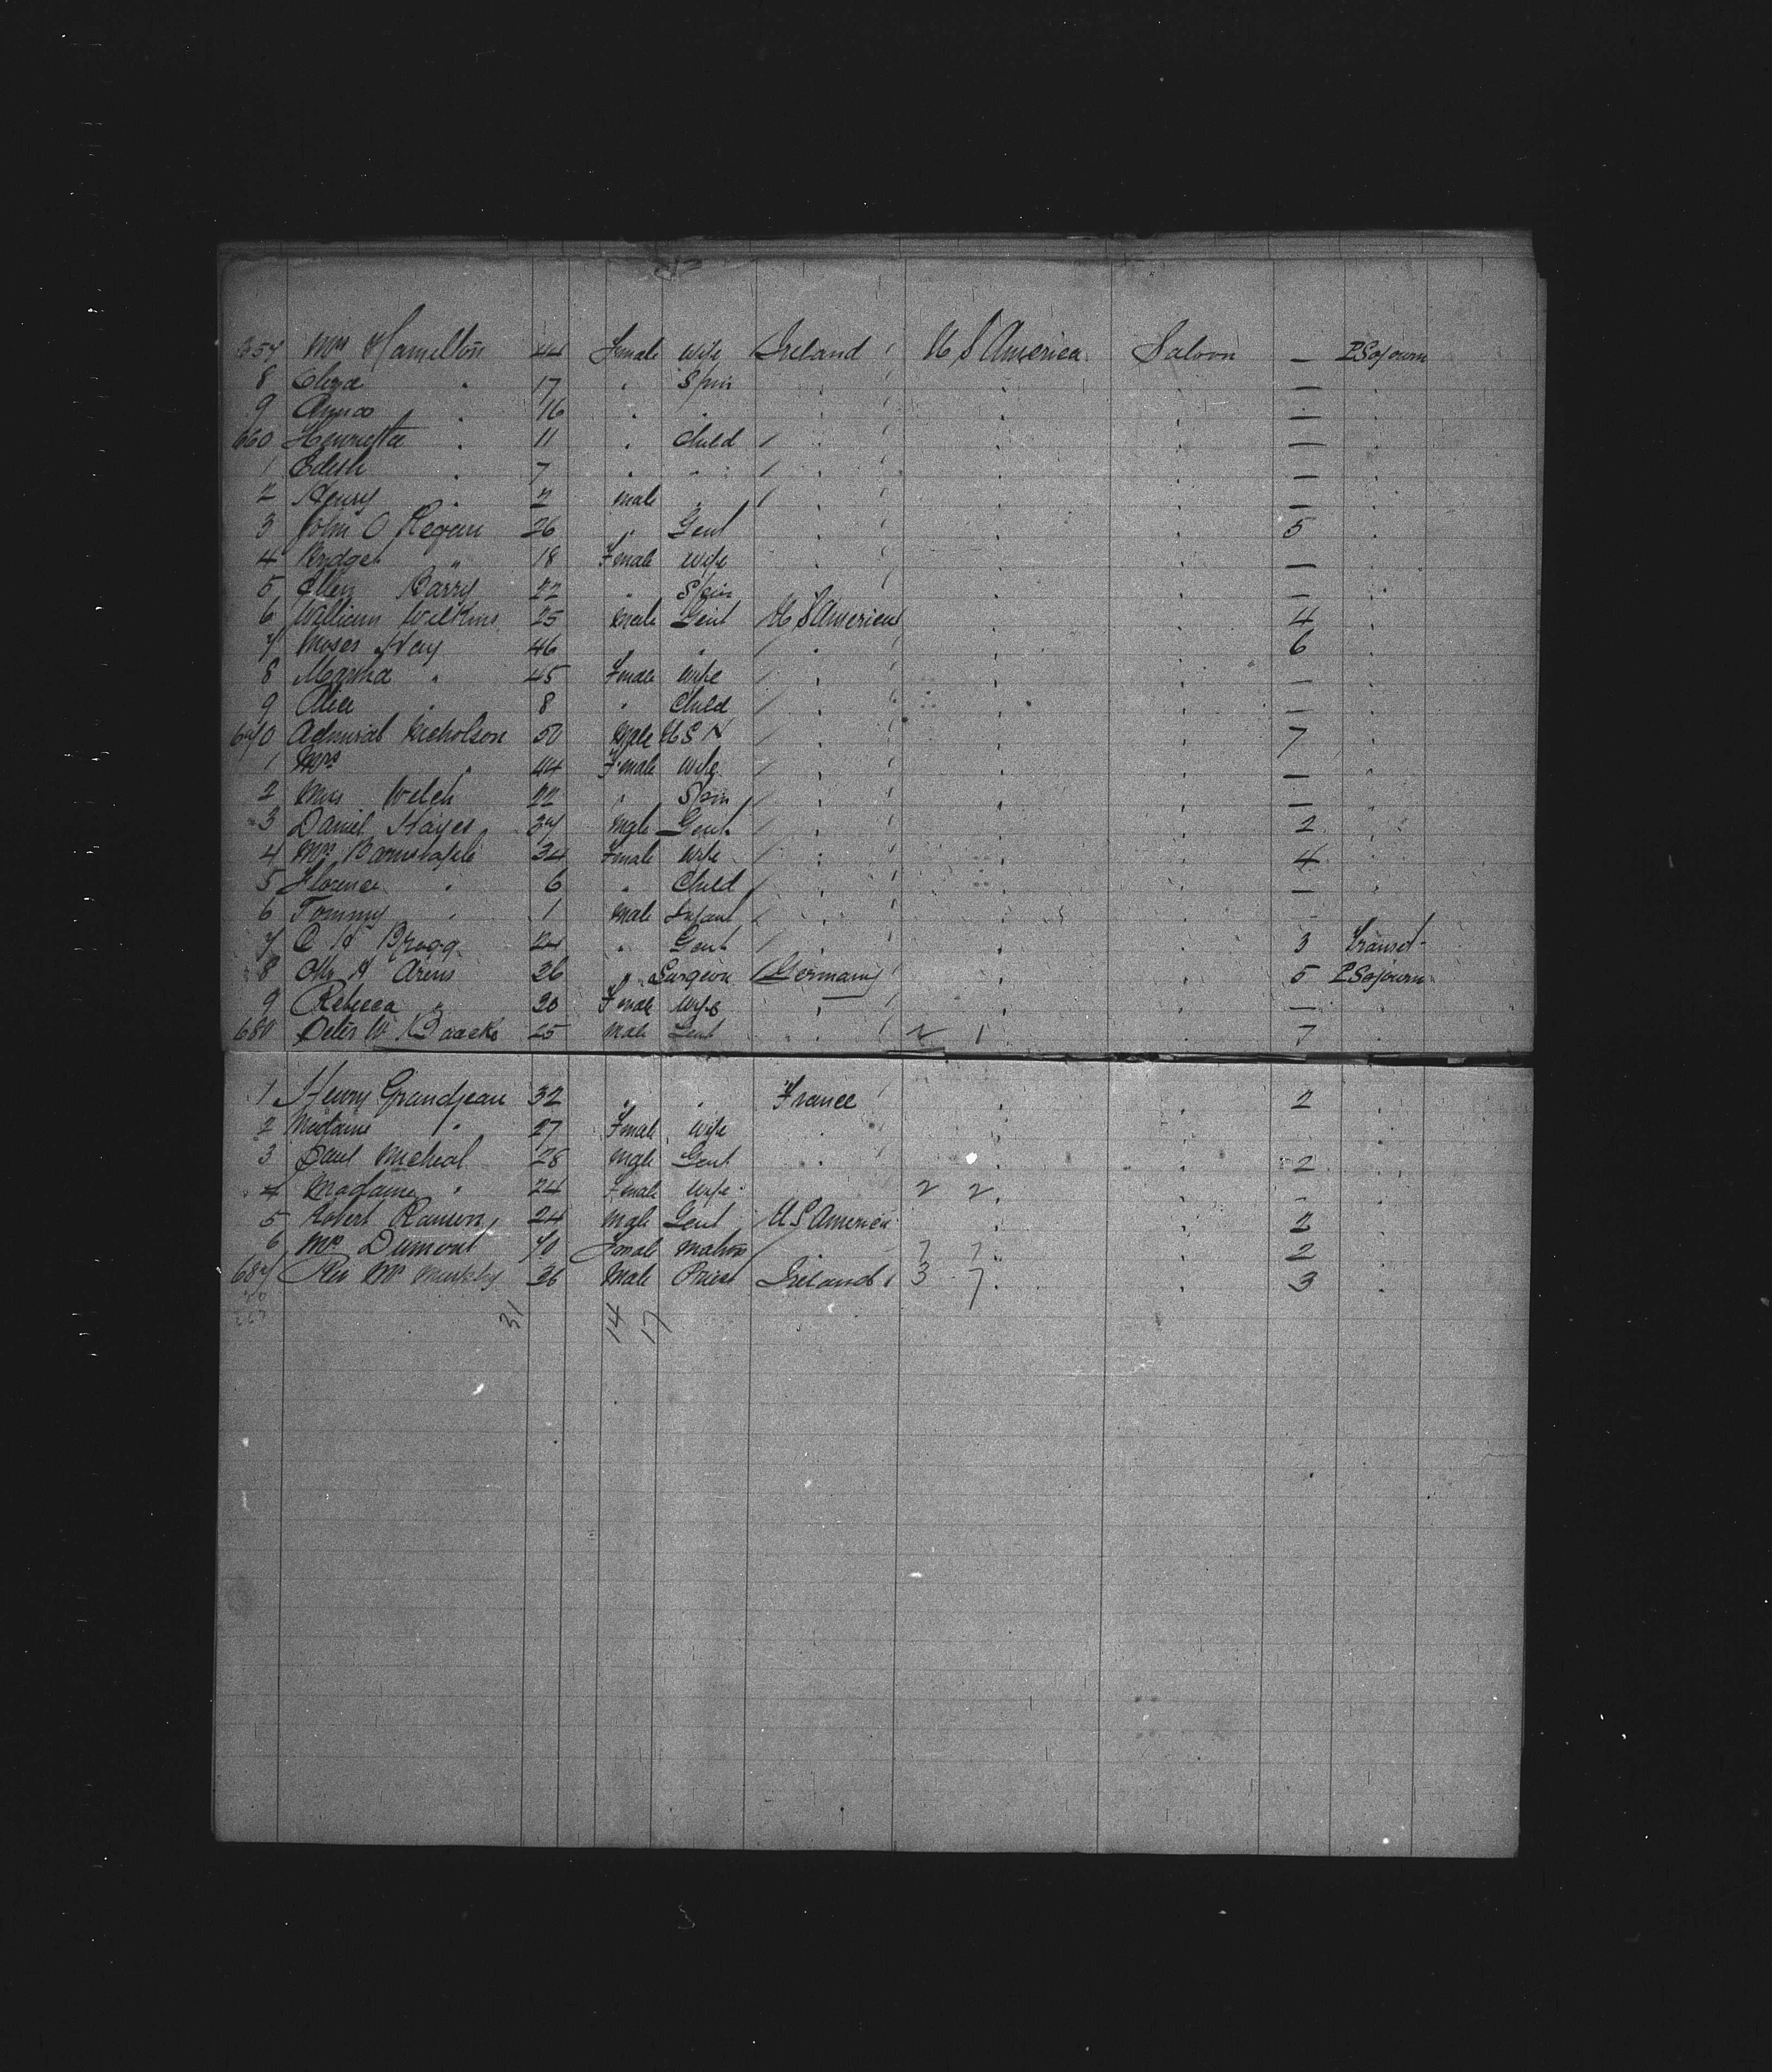 657 Mrs Hamilton 44 Female Wife Ireland U S America Saloon — P Sojourn
8 Eliza " 17 " Spin " " " — "
9 Anna " 16 " " " " " — "
660 Henrietta " 11 " Child " " " — "
1 Edith " 7 " " " " " — "
2 Henry " 2 male " " " " — "
3 John O Regan 26 " Gent " " " 5 "
4 Bridget " 18 Female Wife " " " — "
5 Ellen Barry 22 " Spin " " " — "
6 William Wilkins 25 Male Gent U S America " " 4 "
7 Moses Hay 46 " " " " " 6 "
8 Martha " 45 Female Wife " " " — "
9 Alice " 8 " Child " " " — "
670 Admiral Nicholson 50 Male U S N " " " 7 "
1 Mrs " 44 Female Wife " " " — "
2 Miss Welch 22 " Spin " " " — "
3 Daniel Hayes 37 Male Gent " " " 2 "
4 Mrs Barnstaple 34 Female Wife " " " 4 "
5 Florence " 6 " Child " " " — "
6 Tommy " 1 Male Infant " " " — "
7 C H Bragg 24 " Gent " " " 3 Transit
8 H Arens 26 " Surgeon Germany " " 5 P Sojourn
9 Rebecca " 20 Female Wife " " " — "
680 Peter W 25 Male Gent " " " 7 "
1 Henry Grandjean 32 " " France " " 2 "
2 Madame " 27 Female Wife " " " "
3 Paul Micheal 28 Male Gent " " " 2 "
4 Madame " 24 Female Wife " 2 2 " " - "
5 Robert Ranson 24 Male Gent U S America " " 2 "
6 Mrs Dumont 70 Female Matron " 7 7 " 2 "
687 Rev Mr Murphy 36 Male Priest Ireland 3 7 " " 3 "
31 14 17